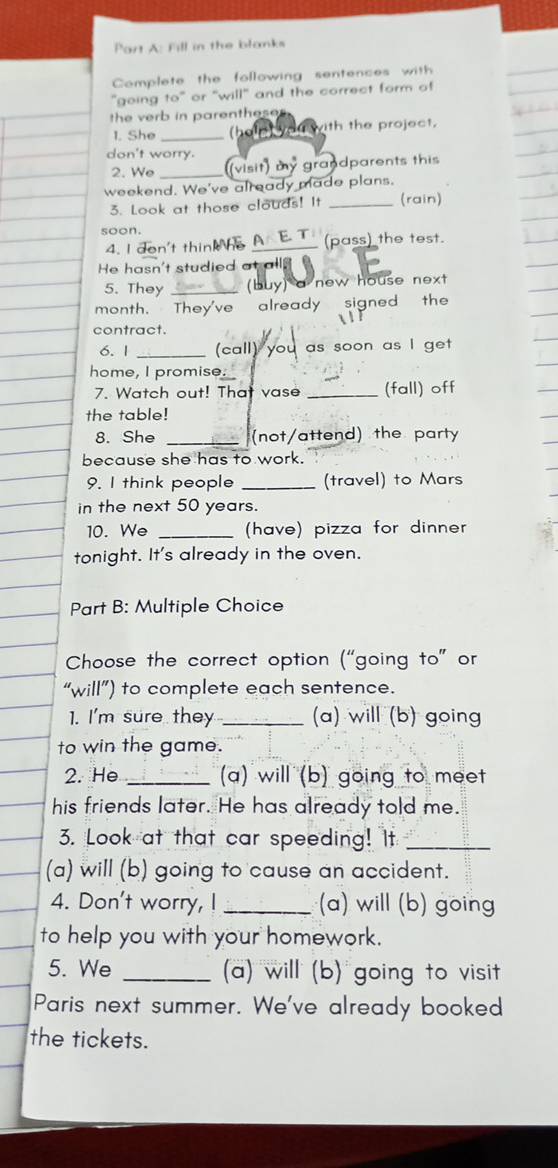 Part A: Fill in the blanks
Complete the following sentences with
"going to" or "will" and the correct form of
the verb in parentheses.
1. She ______ (help) you with the project,
don't worry.
2. We ______ (visit) my grandparents this
weekend. We've already made plans.
3. Look at those clouds! It ______ (rain)
soon.
4. I don't think he ______ (pass) the test.
He hasn't studied at all.
5. They ______ (buy) a new house next
month. They've already signed the
contract.
6. I ______ (call) you as soon as I get
home, I promise.
7. Watch out! That vase ______ (fall) off
the table!
8. She ______ (not/attend) the party
because she has to work.
9. I think people ______ (travel) to Mars
in the next 50 years.
10. We ______ (have) pizza for dinner
tonight. It's already in the oven.
Part B: Multiple Choice
Choose the correct option ("going to" or
"will") to complete each sentence.
1. I'm sure they ______ (a) will (b) going
to win the game.
2. He ______ (a) will (b) going to meet
his friends later. He has already told me.
3. Look at that car speeding! It ______
(a) will (b) going to cause an accident.
4. Don't worry, I ______ (a) will (b) going
to help you with your homework.
5. We ______ (a) will (b) going to visit
Paris next summer. We've already booked
the tickets.